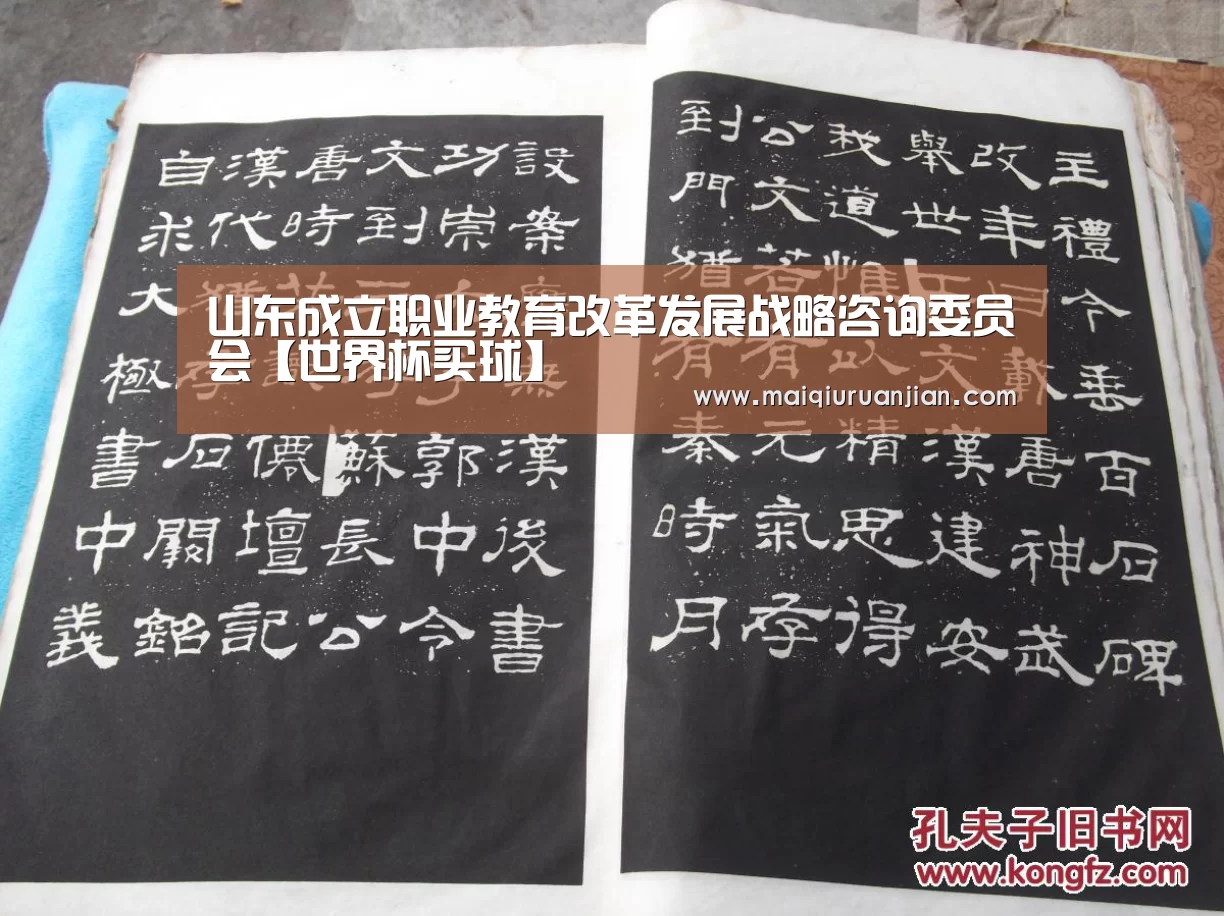 主禮今垂百石碑
改年曰載唐神武
舉世文漢建安
我道惟以精思得
公文若有元氣存
到門猶有秦時月
設案無漢後書
功崇郭中令
文到蘇長公
唐時壇記
漢代猶存石闕銘
自求大極書中義
山东成立职业教育改革发展战略咨询委员
会【世界杯买球】
www.maiqiuruanjian.com
孔夫子旧书网
www.kongfz.com